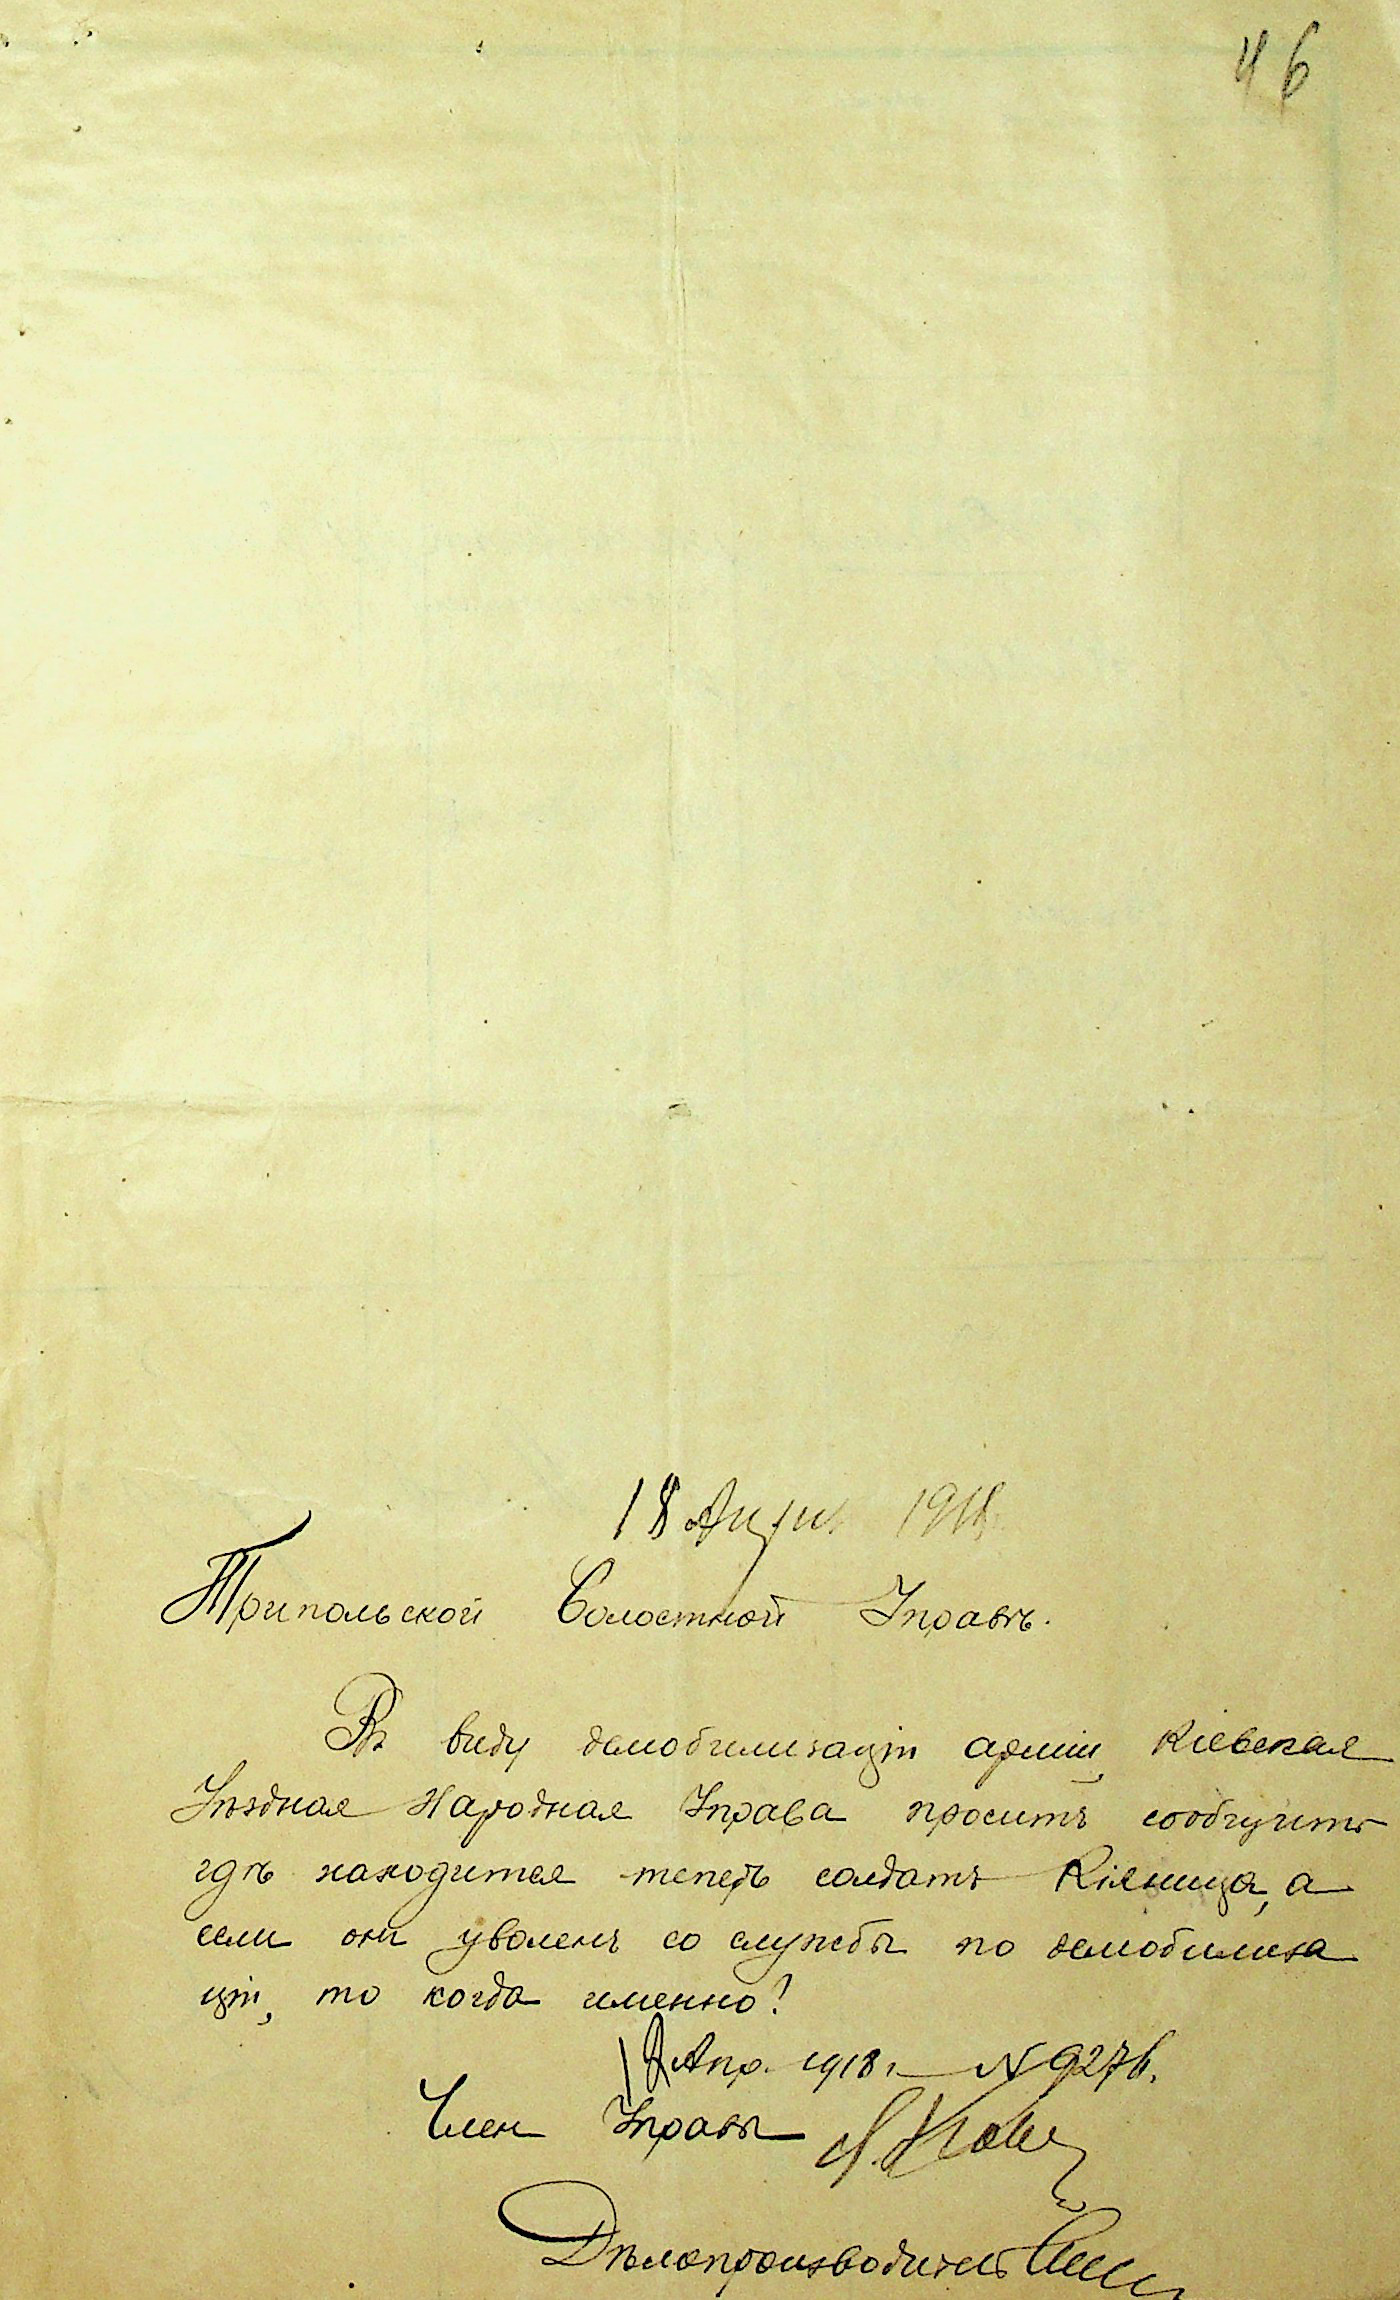 46
18 Апреля 1918
Трипольской Волостной Управѣ.
Въ виду демобилизаціи арміи, Кіевская
Уѣздная Народная Управа проситъ сообщить
гдѣ находится теперь солдатъ Кіяница, а
если онъ уволенъ со службы по демобилиза
ціи, то когда именно?
18 Апр. 1918 г. N 9276.
Член Управы
Дѣлопроизводитель